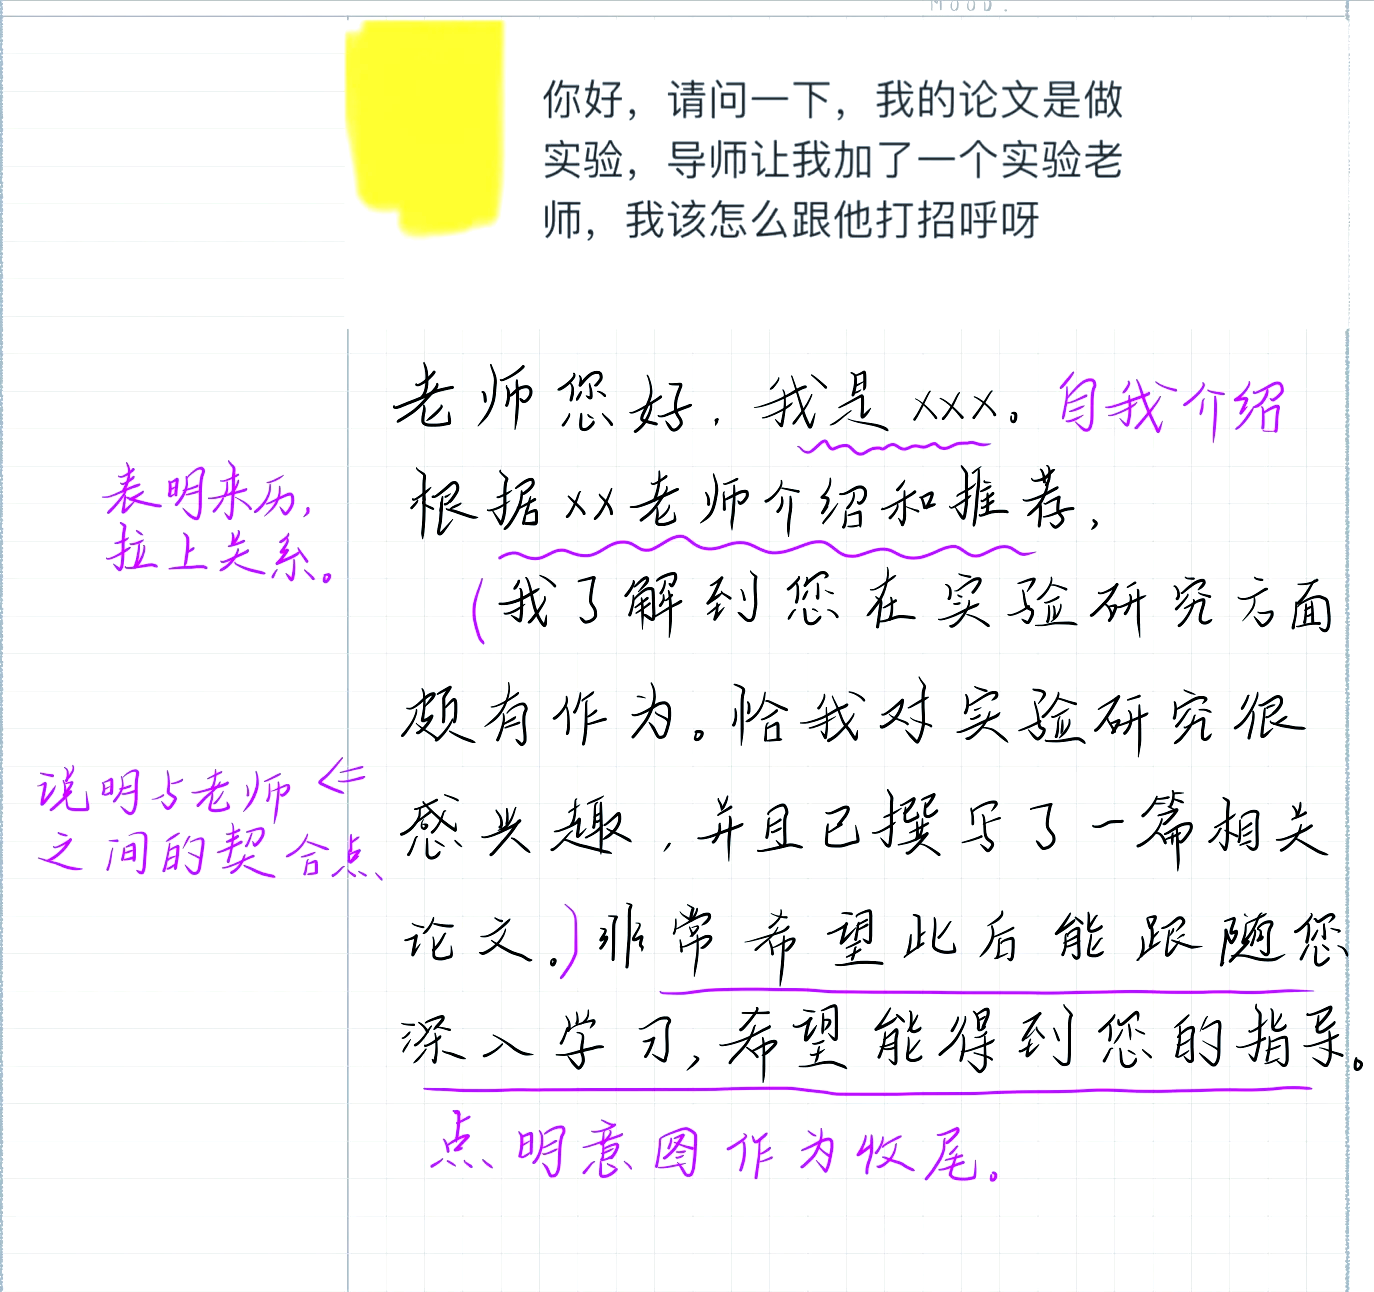 MOOD.
你好，请问一下，我的论文是做
实验，导师让我加了一个实验老
师，我该怎么跟他打招呼呀
老师您好，我是xxx。自我介绍
表明来历，
拉上关系。
根据xx老师介绍和推荐，
(我了解到您在实验研究方面
颇有作为。恰我对实验研究很
说明与老师 <=
之间的契合点
感兴趣，并且已撰写了一篇相关
论文。)非常希望此后能跟随您
深入学习,希望能得到您的指导。
点明意图作为收尾。